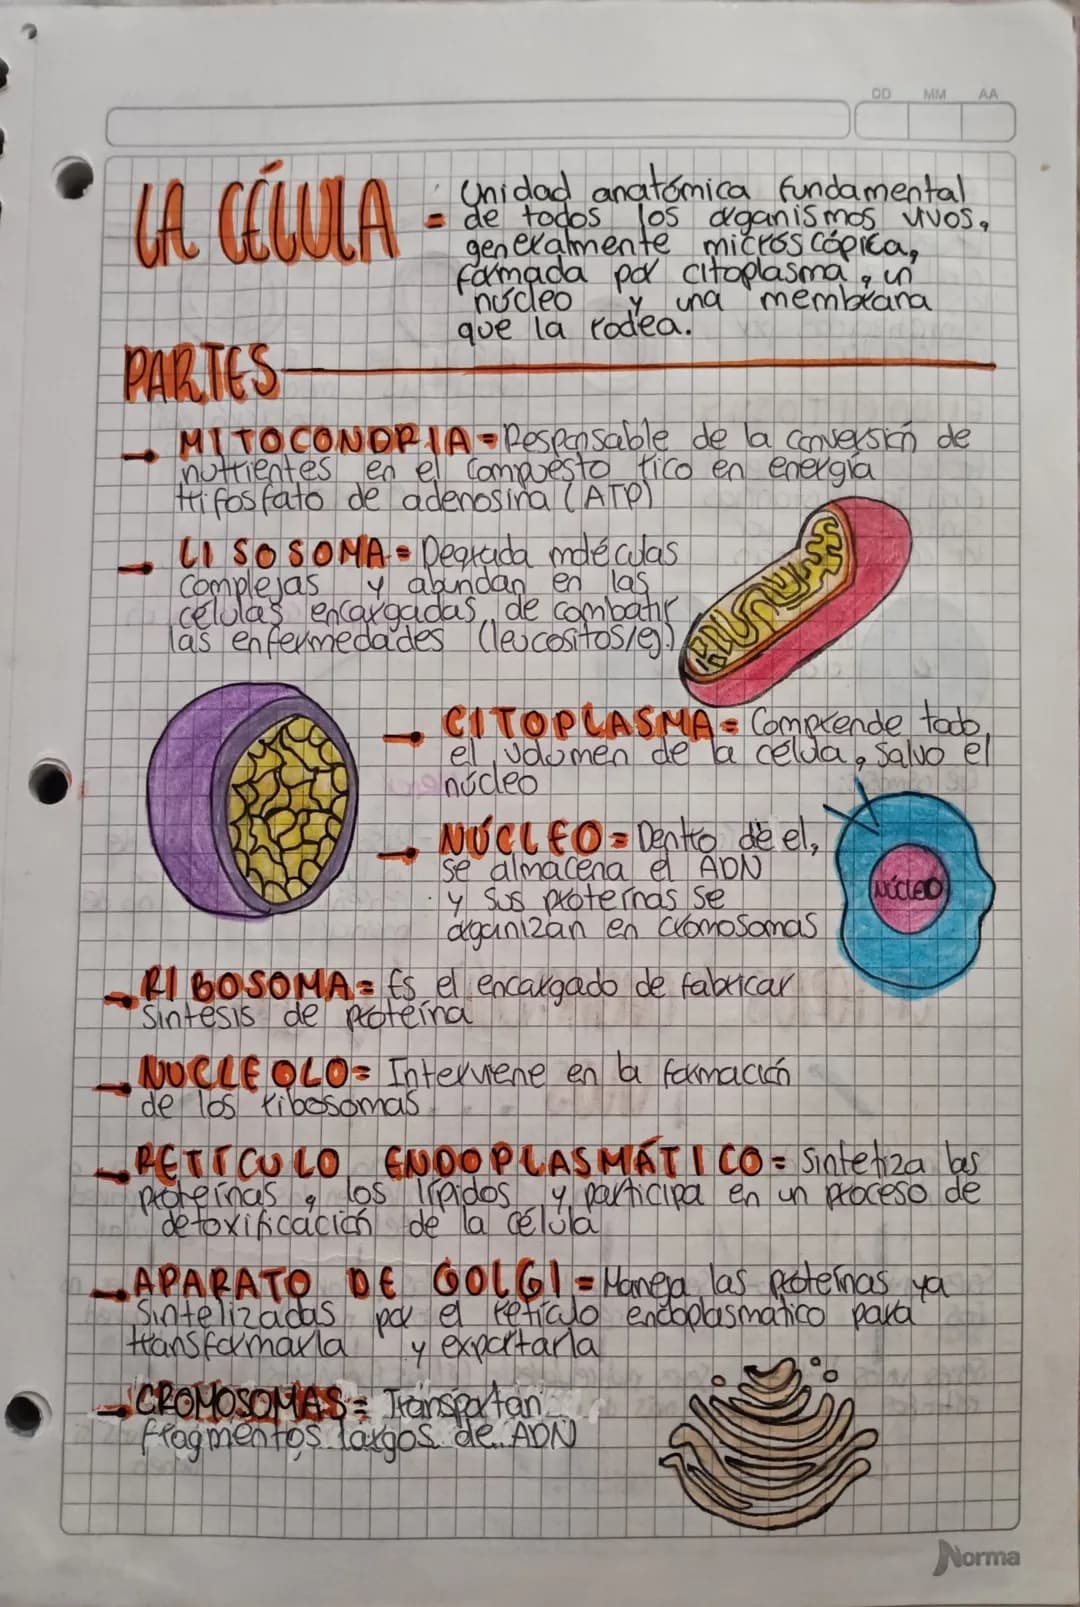 DD MM AA
LA CÉLULA = Unidad anatómica fundamental
de todos los organismos vivos,
generalmente microscópica,
formada por citoplasma, un
núcleo y una membrana
que la rodea.
PARTES
MITOCONDRIA = Responsable de la conversión de
nutrientes en el compuesto rico en energía
trifosfato de adenosina (ATP)
LISOSOMA = Degrada moléculas
complejas y abundan en las
células encargadas de combatir
las enfermedades (leucositos/eg.)
CITOPLASMA = Comprende todo
el volumen de la célula, salvo el
núcleo
NÚCLEO = Dentro de el,
se almacena el ADN
y sus proteínas se
organizan en cromosomas
NÚCLEO
RIBOSOMA = Es el encargado de fabricar
sintesis de proteína
NUCLEOLO = Interviene en la formación
de los ribosomas
RETÍCULO ENDOPLASMÁTICO = Sintetiza las
proteínas, los lípidos y participa en un proceso de
detoxificación de la célula
APARATO DE GOLGI = Maneja las proteínas ya
sintelizadas por el retículo endoplasmático para
transformarla y exportarla
CROMOSOMAS = Transportan
fragmentos largos de ADN
Norma